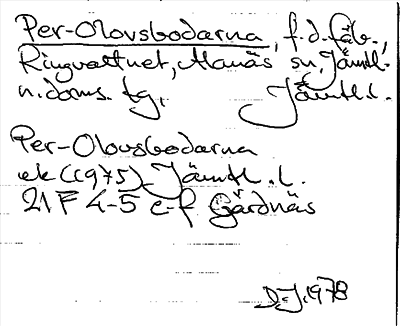 Per-Olovsbodarna, f.d. fäb.,
Ringvattnet, Alanäs sn, Jämtl.
n. doms. tg, Jämtl.l.
Per-Olovsbodarna
ek (1975) Jämtl. l.
21 F 4-5 e-f Gärdnäs
D.J. 1978